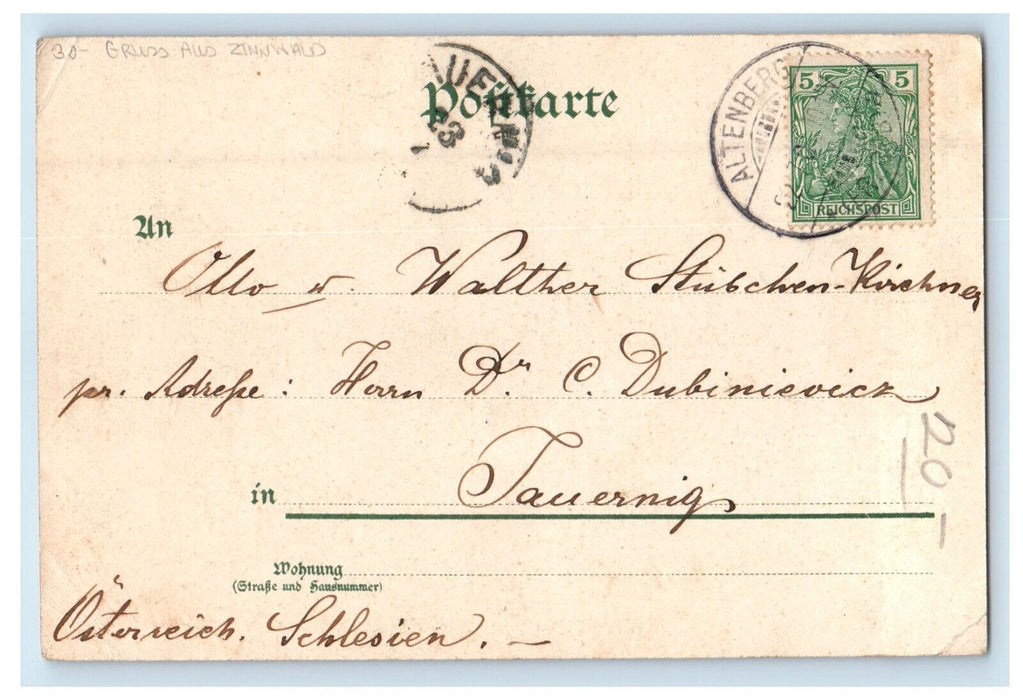 30- GRUSS AUS ZINNWALD
Postkarte
ALTENBERG
5 5
REICHSPOST
An
Otto u. Walther Stübchen-Kirchner
pr. Adreſſe: Herrn Dr. C. Dubinievicz
in Jauernig
20-
Wohnung
(Straße und Hausnummer)
Österreich. Schlesien. —